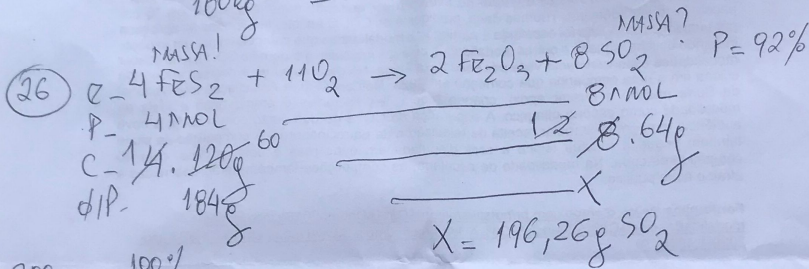 100kg
MASSA! MASSA?
26 E_ 4 FeS2 + 11O2 → 2 Fe2O3 + 8 SO2 P = 92%
P_ 4 MOL 8 MOL
C_ 1 4. 120g 60 1 2 8.64g
d/P- 184g X
X = 196,26g SO2
100%